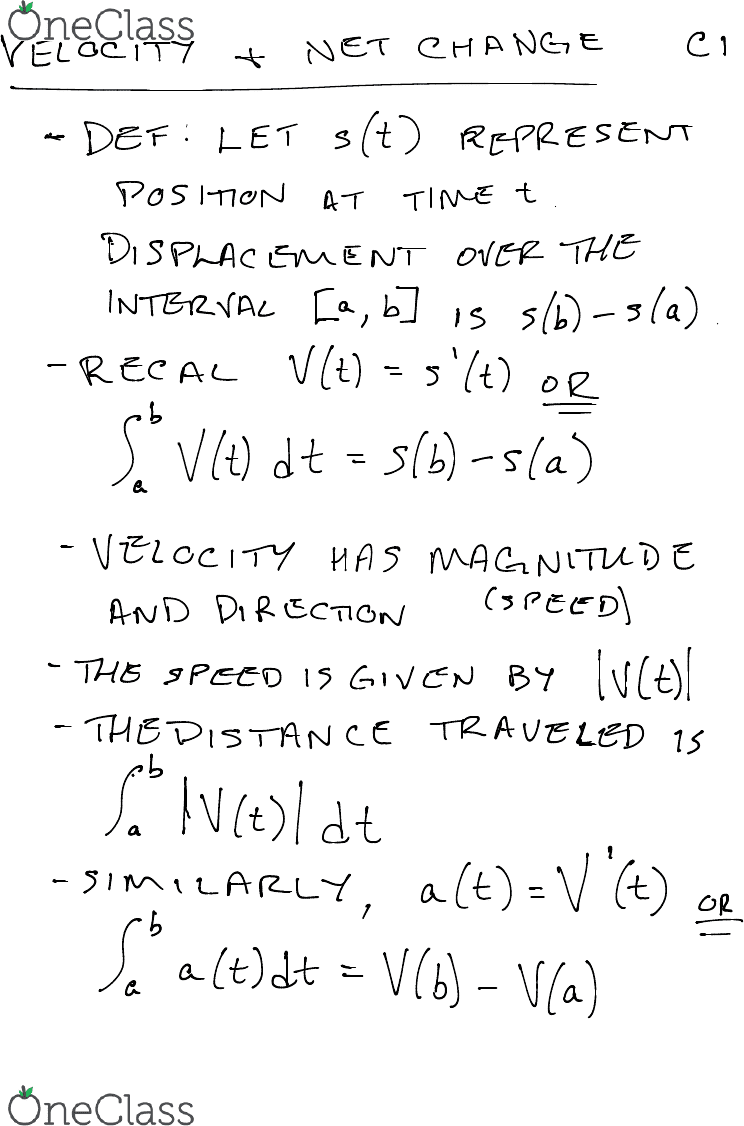 OneClass
VELOCITY + NET CHANGE C1
- DEF: LET s(t) REPRESENT
POSITION AT TIME t.
DISPLACEMENT OVER THE
INTERVAL [a, b] IS s(b) - s(a).
- RECAL V(t) = s'(t) OR
∫_a^b V(t) dt = S(b) - s(a)
- VELOCITY HAS MAGNITUDE
AND DIRECTION (SPEED)
- THE SPEED IS GIVEN BY |V(t)|
- THE DISTANCE TRAVELED IS
∫_a^b |V(t)| dt
- SIMILARLY, a(t) = V'(t) OR
∫_a^b a(t) dt = V(b) - V(a)
OneClass